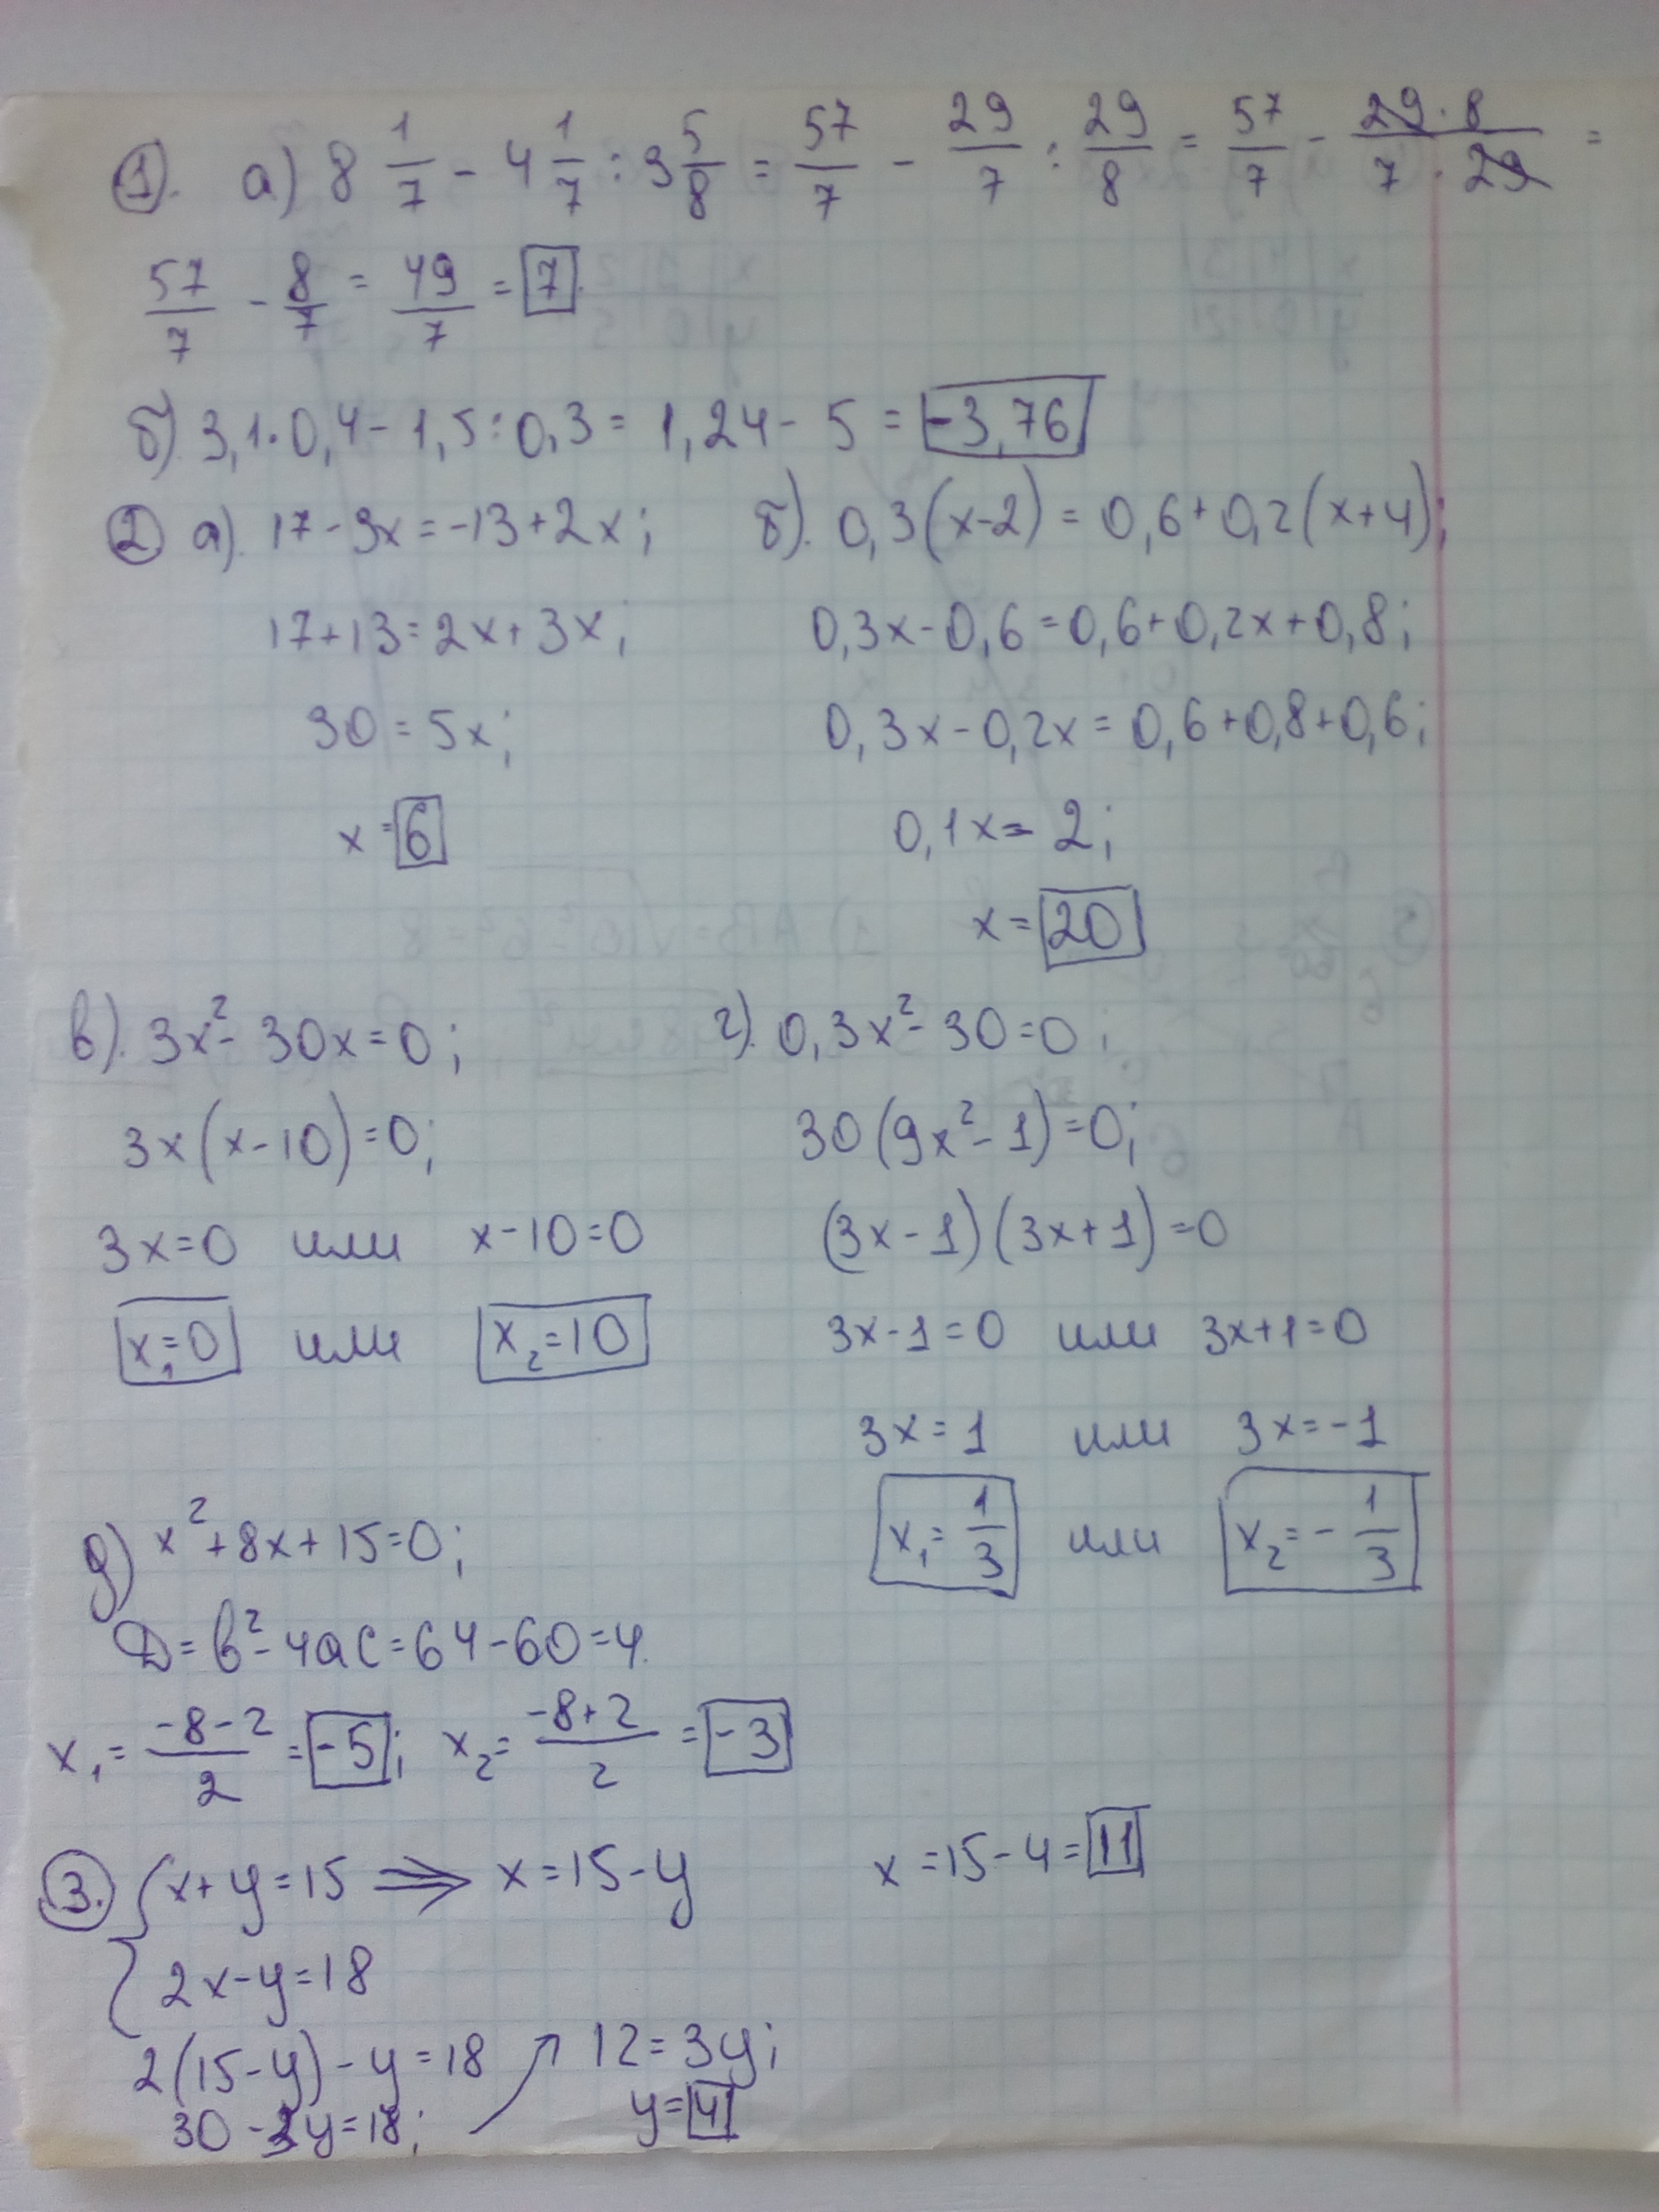 1. а) 8 1/7 - 4 1/7 : 3 5/8 = 57/7 - 29/7 : 29/8 = 57/7 - 29·8/7·29 =
57/7 - 8/7 = 49/7 = 7.
б) 3,1·0,4 - 1,5:0,3 = 1,24 - 5 = -3,76
2 а). 17-3x=-13+2x;
17+13=2x+3x;
30=5x;
x=6
б). 0,3(x-2)=0,6+0,2(x+4);
0,3x-0,6=0,6+0,2x+0,8;
0,3x-0,2x=0,6+0,8+0,6;
0,1x=2;
x=20
в). 3x²-30x=0;
3x(x-10)=0;
3x=0 или x-10=0
x₁=0 или x₂=10
г). 0,3x²-30=0;
30(9x²-1)=0;
(3x-1)(3x+1)=0
3x-1=0 или 3x+1=0
3x=1 или 3x=-1
x₁=1/3 или x₂=-1/3
д) x²+8x+15=0;
D=b²-4ac=64-60=4.
x₁=-8-2/2=-5; x₂=-8+2/2=-3
3. {x+y=15 ⟹ x=15-y
2x-y=18
2(15-y)-y=18
30-3y=18;
↗ 12=3y;
y=4
x=15-4=11